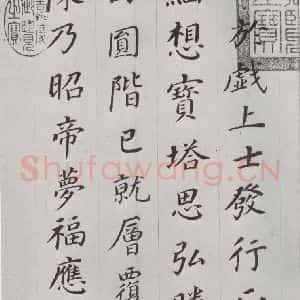 於戲上士發行
緬想寶塔思弘勝
圓階已就層覆
陳乃昭帝夢福應
Shufawang.CN